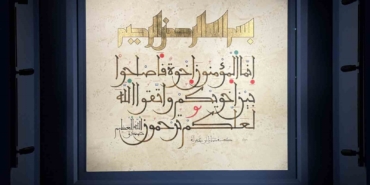 بسم الله الرحمن الرحيم
إنما المؤمنون إخوة فأصلحوا
بين أخويكم واتقوا الله
لعلكم ترحمون